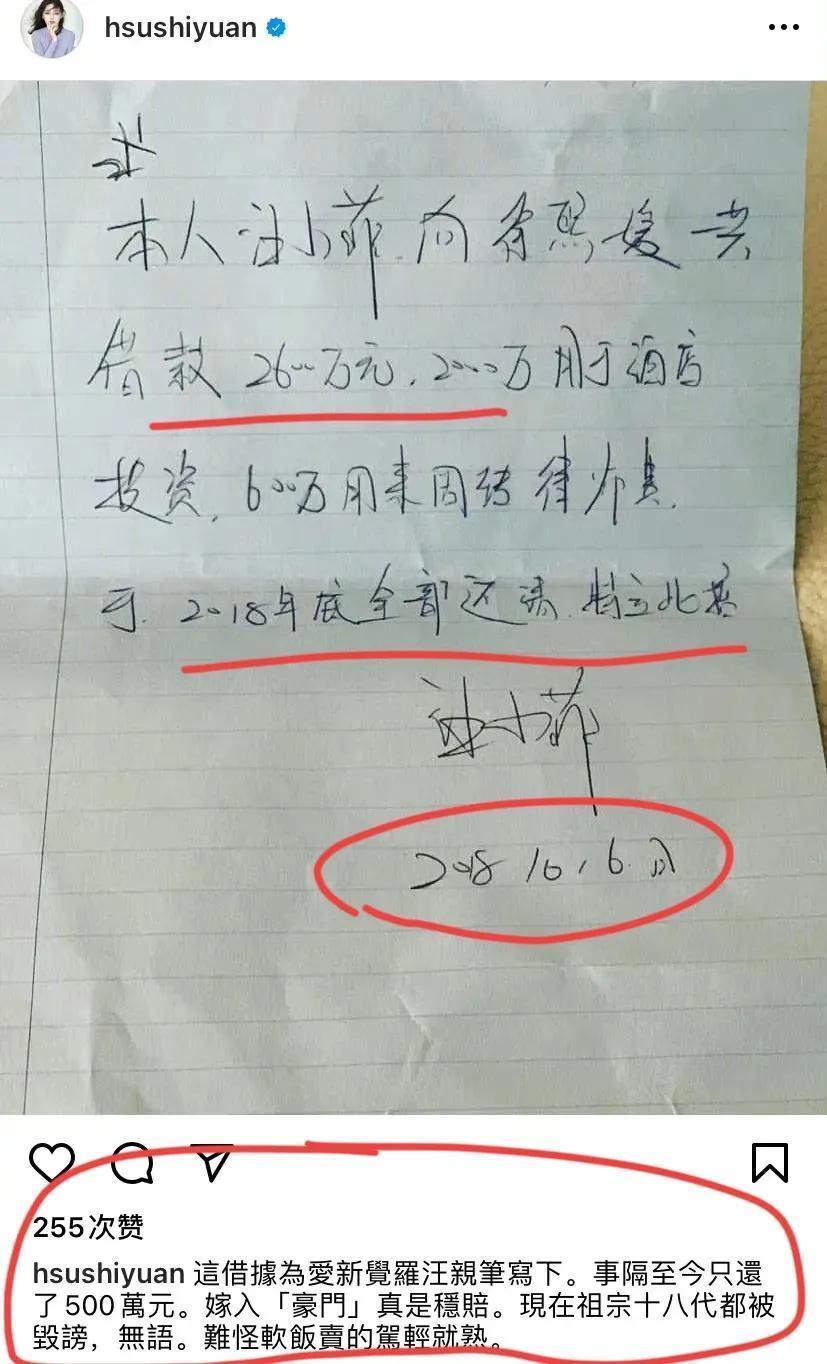 hsushiyuan
本人汪小菲向徐熙媛共
借款2600万元,2000万用于酒店
投资,600万用来周转律师费,
于2018年底全部还清,特立此据
汪小菲
2018 10,6日
255次赞
hsushiyuan 這借據為愛新覺羅汪親筆寫下。事隔至今只還
了500萬元。嫁入「豪門」真是穩賠。現在祖宗十八代都被
毀謗，無語。難怪軟飯賣的駕輕就熟。